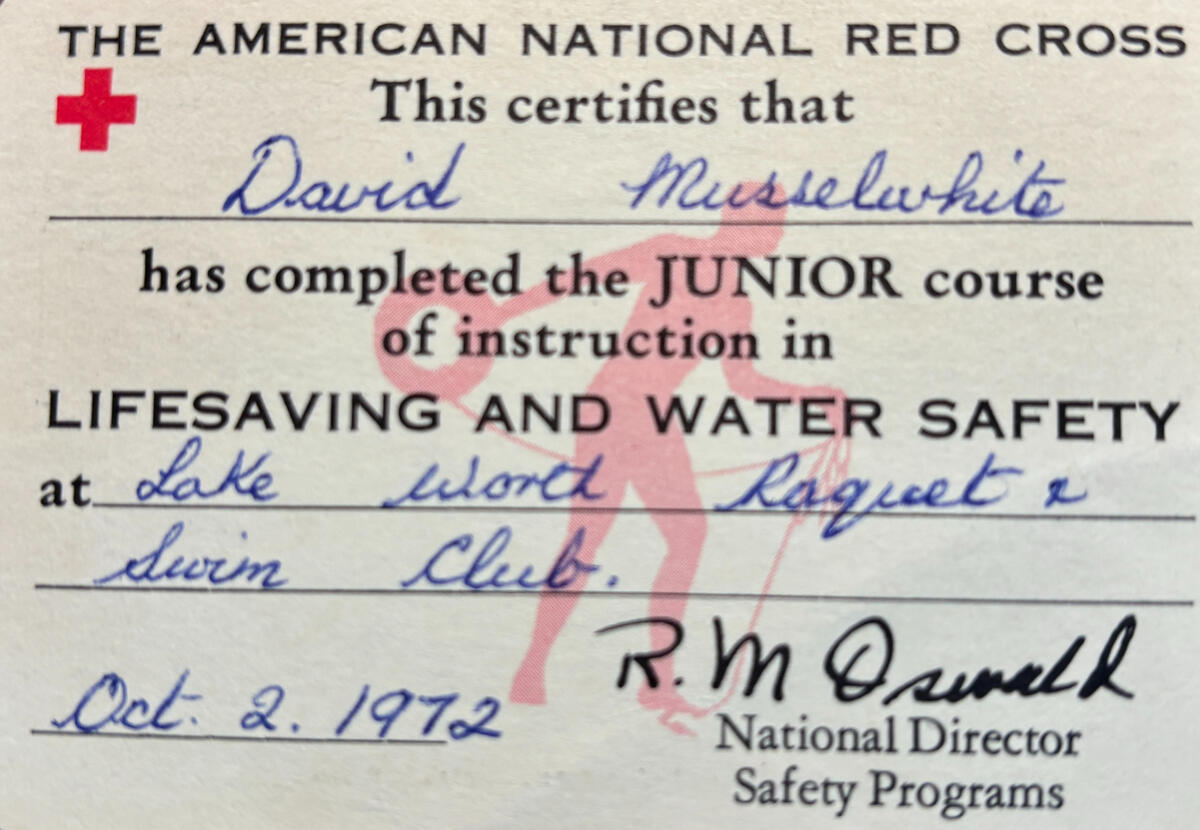 THE AMERICAN NATIONAL RED CROSS
This certifies that
David Musselwhite
has completed the JUNIOR course
of instruction in
LIFESAVING AND WATER SAFETY
at Lake Worth Raquet &
Swim Club.
Oct. 2. 1972
R. M Oswald
National Director
Safety Programs